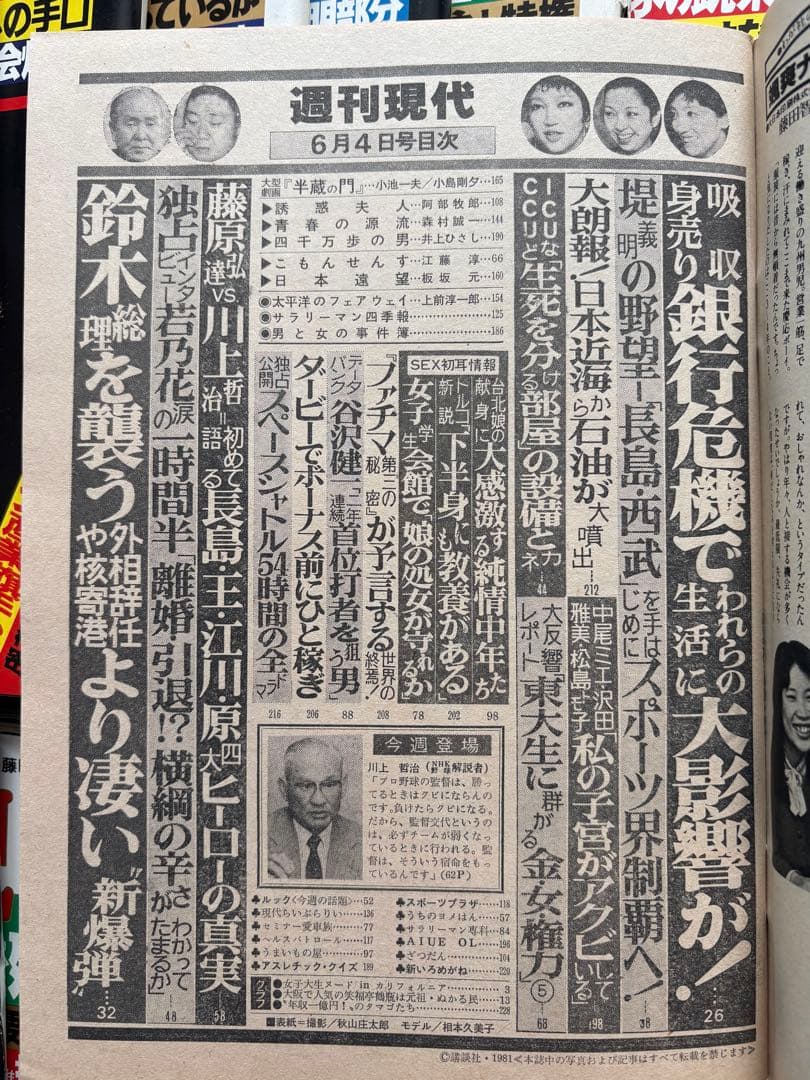 週刊現代
6月4日号目次
吸収身売り銀行危機でわれらの生活に大影響が!……26
堤義明の野望―「長島・西武」を手はじめにスポーツ界制覇へ!……38
大朗報!日本近海から石油が大噴出……212
中尾ミエ・沢田雅美・松島トモ子「私の子宮がアクビしている」……198
ICUな CCUと「生死を分ける部屋」の設備とカネ……44
大反響レポート「東大生に群がる金・女・権力」⑤……68
大型劇画『半蔵の門』…小池一夫/小島剛夕…165
▶誘惑夫人……阿部牧郎…108
▶青春の源流……森村誠一…144
▶四千万歩の男…井上ひさし…190
▶こもんせんす…江藤淳…66
▶日本遠望……板坂元…160
●太平洋のフェアウェイ…上前淳一郎…154
●サラリーマン四季報……125
●男と女の事件簿……186
SEX初耳情報
台北娘の献身に大感激する純情中年たち 98
トルコ新説「下半身にも教養がある」 202
女子学生会館で「娘の処女が守れるか」 78
『ファチマ第三の秘密』が予言する世界の終焉! 208
データバンク谷沢健一「二年連続首位打者」を狙う男 88
ダービーでボーナス前にひと稼ぎ 206
独占公開スペースシャトル54時間の全ドラマ 216
藤原弘達VS.川上哲治=初めて語る長島・王・江川・原四大ヒーローの真実……58
独占インタビュー若乃花涙の一時間半「離婚、引退!?横綱の辛さわかってたまるか」……48
鈴木総理を襲う外相辞任や核寄港より凄い“新爆弾”……32
今週登場
川上 哲治(NHK野球解説者)
「プロ野球の監督は、勝っ
てるときはクビにならんの
です。負けたらクビになる。
だから、監督交代というの
は、必ずチームが弱くなっ
ているときに行われる。
監督は、そういう宿命をもっ
ているんです」(62P)
♣ルック〈今週の話題〉…52
♣現代ちいぷらりい…136
♣セミナー愛車族……77
♣ヘルスパトロール…117
♣うまいもの屋……97
♣アスレチック・クイズ 189
♣スポーツプラザ……118
♣うちのヨメはん……57
♣サラリーマン専科…84
♣AIUE OL……196
♣ざつだん……104
♣新いろめがね……220
グラフ
●女子大生ヌード in カリフォルニア……3
●大阪で人気の笑福亭鶴瓶は元祖・ぬかる民…13
●“年収一億円!”のタマゴたち……228
■表紙=撮影/秋山庄太郎 モデル/相本久美子
©講談社・1981<本誌中の写真および記事はすべて転載を禁じます>